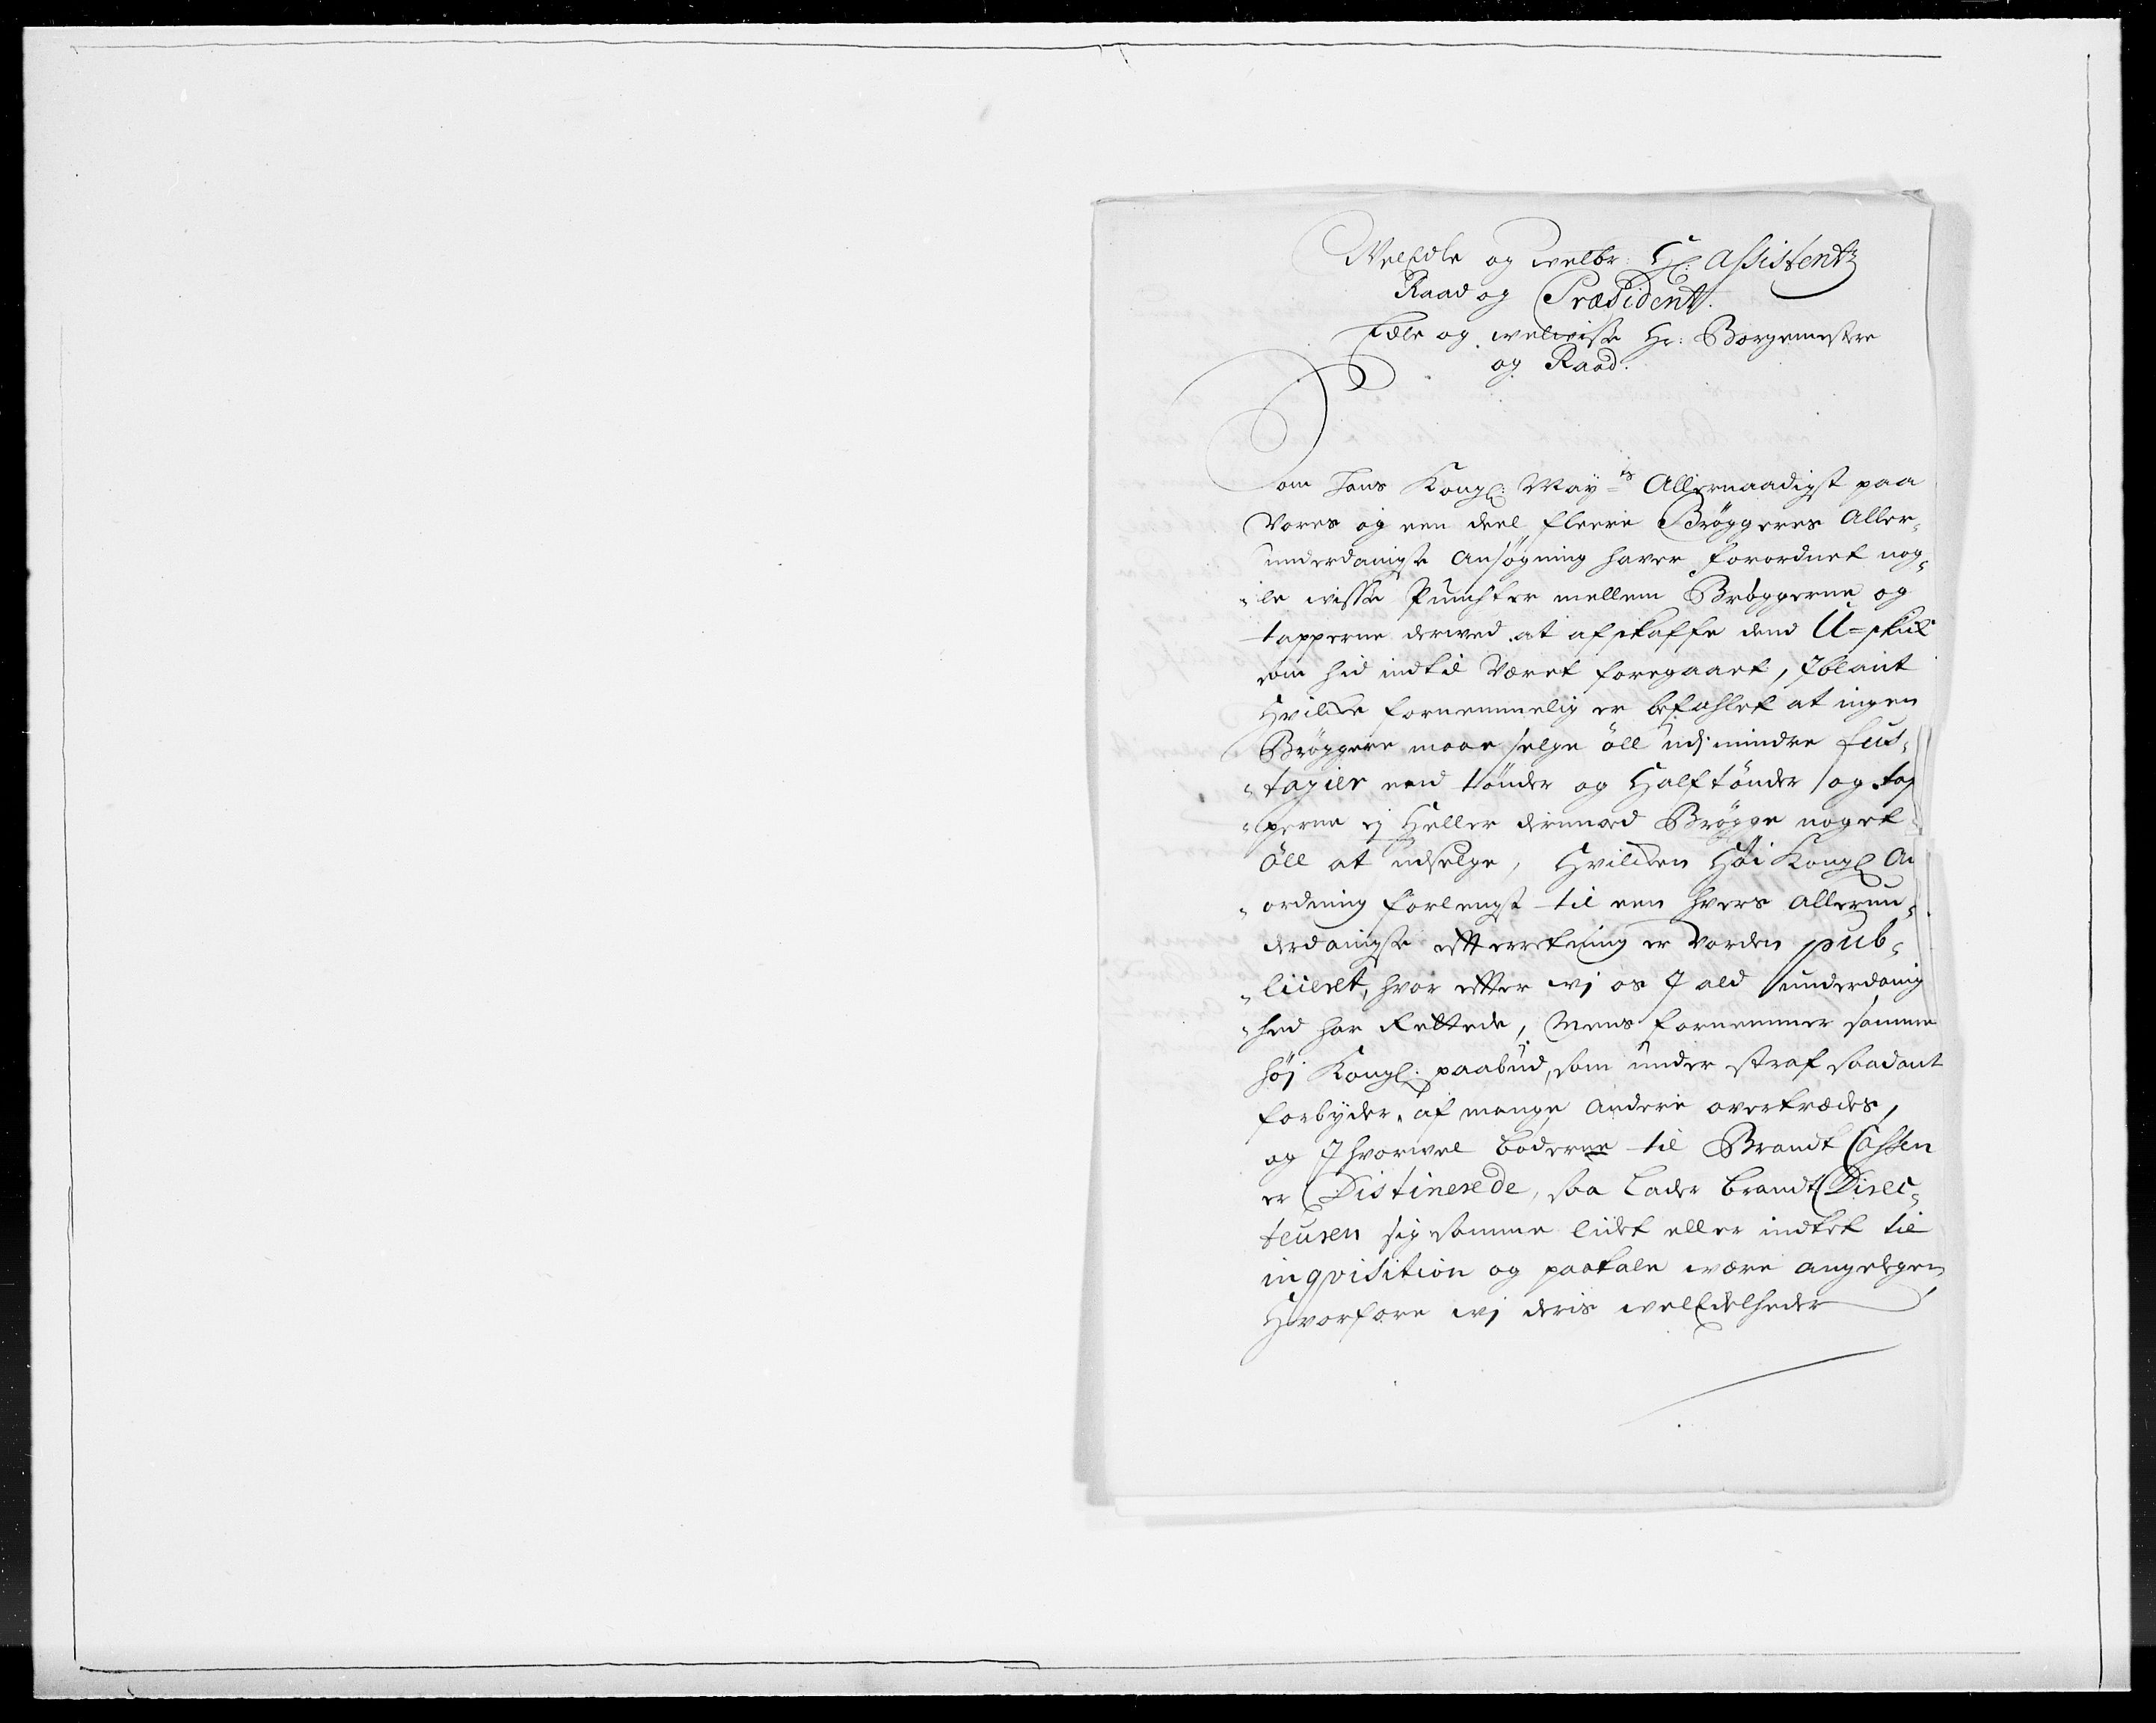 WelEdle og welbr: Hr: Assistentz
Raad og Præsident.
Edle og welwisse Hr: Borgemestre
og Raad.
Som Hans Kongl: May:ts Allernaadigst paa
Vores og een deel fleere Bröggeres Aller-
underdanigste Ansøgning haver forordnet nog-
le wisse Puncter mellem Bröggerne og
tapperne derwed at afskaffe dend U-skick
som hid indtil Været foregaaet, Iblant
Hvilcke fornemmelig er befahlet at ingen
Bröggere maae selge öll ud i mindre fus-
tagier end tönder og Halftönder og tap
perne ej Heller dermed Brögge noget
öll at udselge, Hvilcken Höi Kongl An
ordning forlengst til een hvers allerun-
derdanigste efterretning er vorden pub-
liceret, hvor effter wj os I ald underdanig
hed har Rettede, Mens fornemmer samme
höj Kongl: paabud, som under straf saadant
forbyder, af mange Andere overtrædes,
og Ihvorwel böderne til Brandt Cassen
er Distinerede, saa lader brandt Direc-
teuren sig samme lidet eller indtet til
inqvisition og paatale være angelegen
Hvorfore wj deris welEdelheder